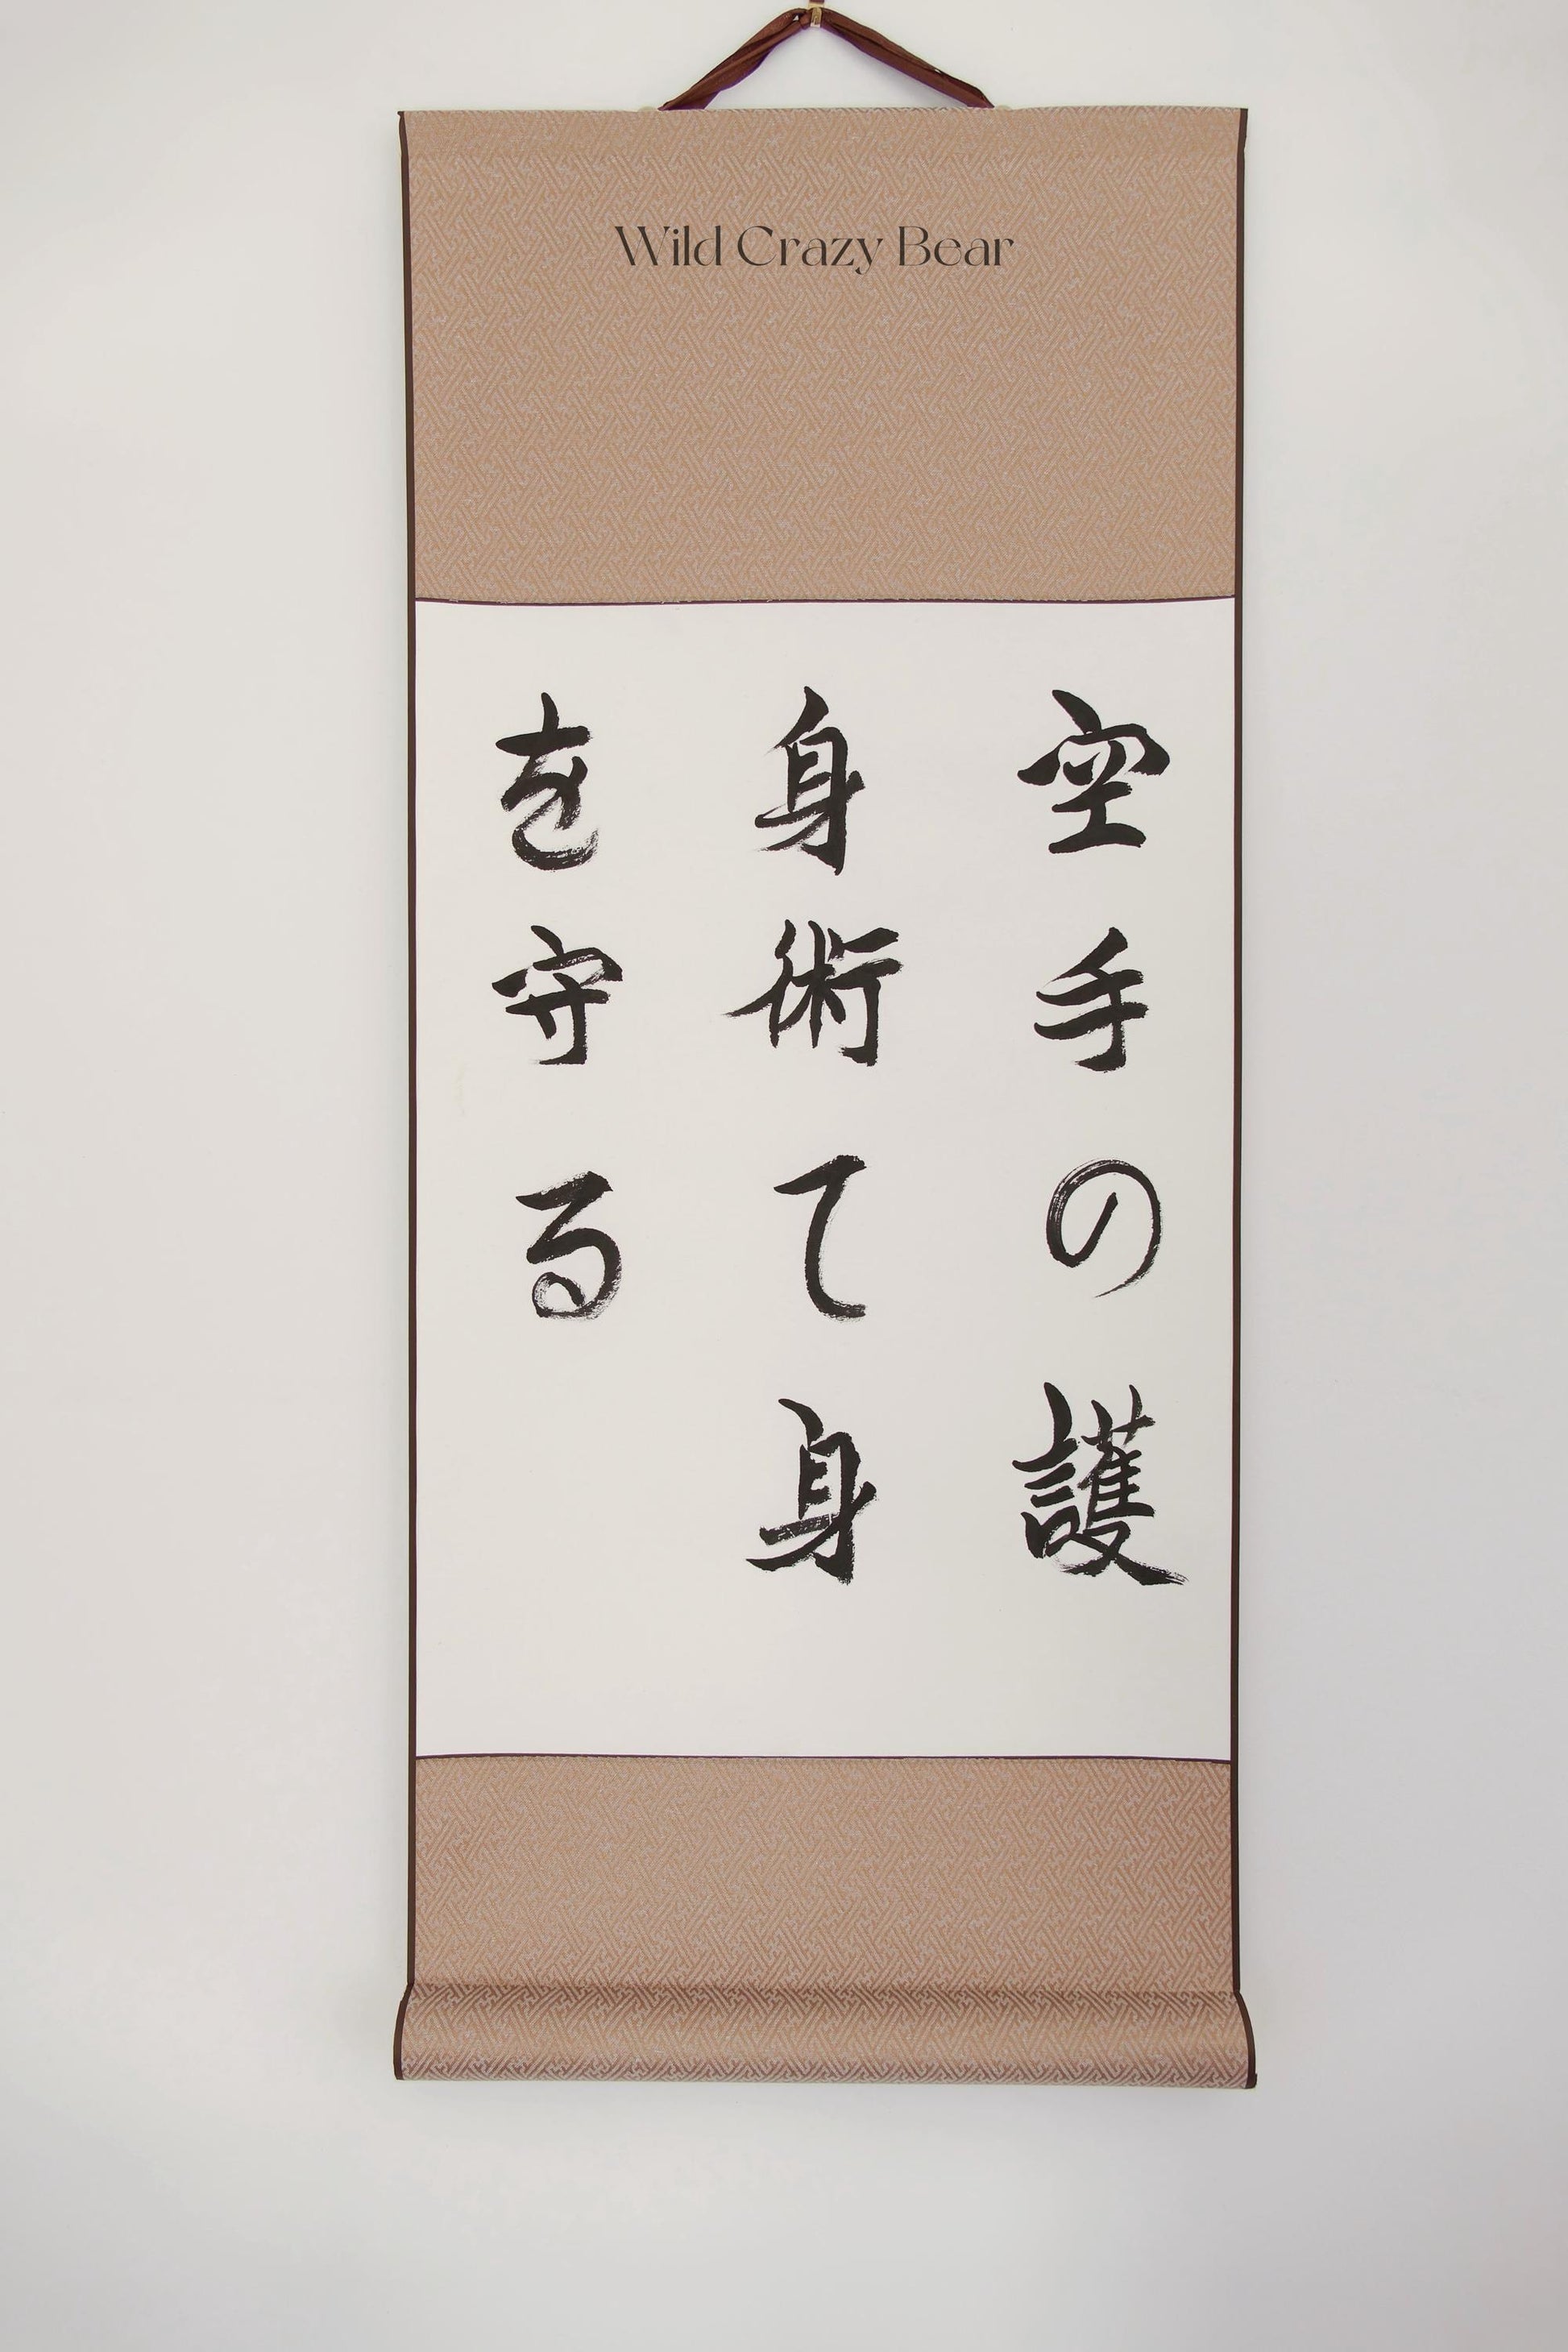 Wild Crazy Bear
空手の護
身術て身
を守る